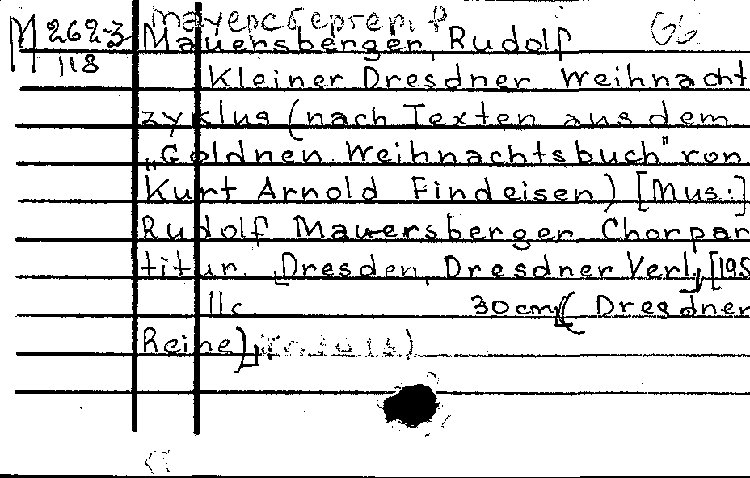 Мауерсбергер, Р
М 2623 Mauersberger, Rudolf Gb
118 Kleiner Dresdner Weihnacht
zyklus (nach Texten aus dem
„Goldnen Weihnachtsbuch" von
Kurt Arnold Findeisen) [Mus:]
Rudolf Mauersberger Chorpar
titur. Dresden, Dresdner Verl., [195
11c 30cm (Dresdner
Reihe)